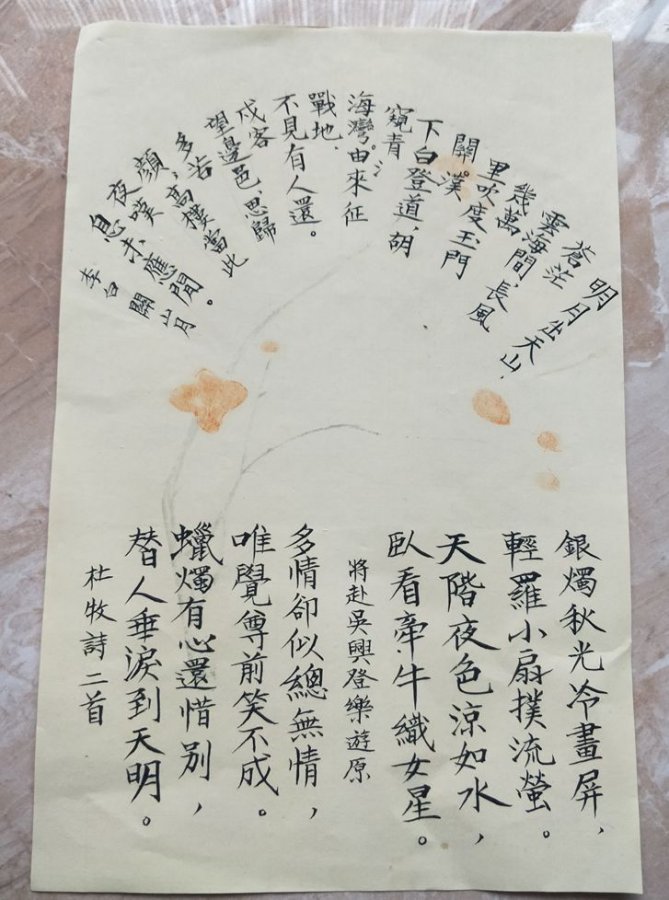 明月出天山，
蒼茫
雲海間，長風
幾萬
里吹度玉門
關。漢
下白登道，胡
窺青
海灣。由來征
戰地，
不見有人還。
戍客
望邊邑，思歸
多苦
顏，高樓當此
夜嘆
息未應閒。
李白 關山月
銀燭秋光冷畫屏，
輕羅小扇撲流螢。
天階夜色涼如水，
臥看牽牛織女星。
將赴吳興登樂遊原
多情卻似總無情，
唯覺尊前笑不成。
蠟燭有心還惜别，
替人垂淚到天明。
杜牧詩二首